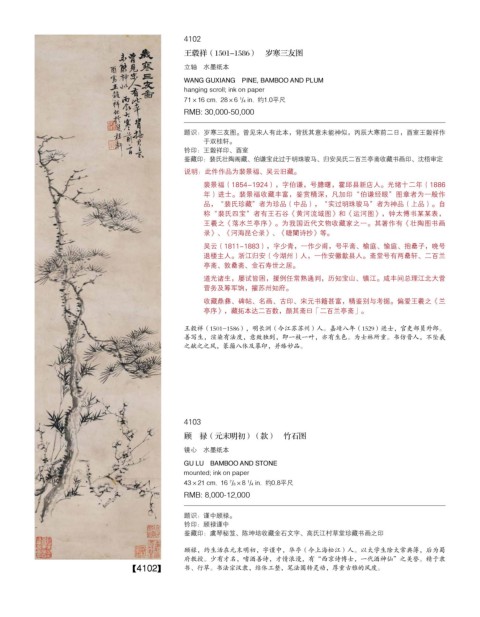 歲寒三友圖
4102
王穀祥（1501-1586）　岁寒三友图
立轴　水墨纸本
WANG GUXIANG　PINE, BAMBOO AND PLUM
hanging scroll; ink on paper
71×16 cm.  28×6 ¼ in.  约1.0平尺
RMB: 30,000-50,000
题识：岁寒三友图。曾见宋人有此本，背抚其意未能神似。丙辰大寒前二日，酉室王穀祥作
于双桂轩。
钤印：王穀祥印、酉室
鉴藏印：裴氏壮陶阁藏、伯谦宝此过于明珠骏马、归安吴氏二百兰亭斋收藏书画印、沈梧审定
说明：此件作品为裴景福、吴云旧藏。
裴景福（1854-1924），字伯谦，号臆闇，霍邱县新店人。光绪十二年（1886
年）进士。裴景福收藏丰富，鉴赏精深，凡加印“伯谦经眼”图章者为一般作
品，“裴氏珍藏”者为珍品（中品），“实过明珠骏马”者为神品（上品）。自
称“裴氏四宝”者有王石谷《黄河流域图》和《运河图》，钟太傅书某某表，
王羲之《落水兰亭序》。为我国近代文物收藏家之一。其著作有《壮陶图书画
录》、《河海昆仑录》、《睫闇诗抄》等。
吴云（1811-1883），字少青，一作少甫，号平斋、榆庭、愉庭、抱罍子，晚号
退楼主人。浙江归安（今湖州）人，一作安徽歙县人。斋堂号有两罍轩、二百兰
亭斋、敦罍斋、金石寿世之居。
道光诸生，屡试皆困，援例任常熟通判，历知宝山、镇江。咸丰间总理江北大营
营务及筹军饷，擢苏州知府。
收藏鼎彝、碑帖、名画、古印、宋元书籍甚富，精鉴别与考据。偏爱王羲之《兰
亭序》，藏拓本达二百数，颜其斋曰「二百兰亭斋」。
王穀祥（1501-1586），明长洲（今江苏苏州）人。嘉靖八年（1529）进士，官吏部员外郎。
善写生，渲染有法度，意致独到，即一枝一叶，亦有生色。为士林所重。书仿晋人，不坠羲
之献之之风，篆籀八体及摹印，并臻妙品。
4103
顾　禄（元末明初）（款）　竹石图
镜心　水墨纸本
GU LU　BAMBOO AND STONE
mounted; ink on paper
43×21 cm.  16 ⅞×8 ¼ in.  约0.8平尺
RMB: 8,000-12,000
题识：谨中顾禄。
钤印：顾禄谨中
鉴藏印：虞琴秘笈、陈坤培收藏金石文字、高氏江村草堂珍藏书画之印
顾禄，约生活在元末明初，字谨中，华亭（今上海松江）人。以太学生除太常典簿，后为蜀
府教授。少有才名，嗜酒善诗，才情浪漫，有“西京诗博士，一代酒神仙”之美誉。精于隶
书、行草。书法宗汉隶，结体工整，笔法圆转灵动，厚重古雅的风度。
【4102】